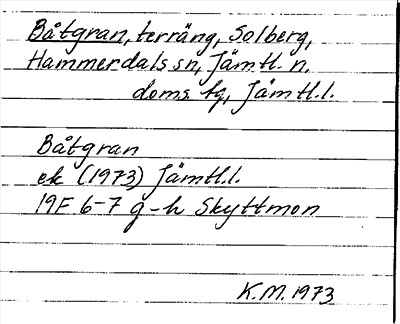 Båtgran, terräng, Solberg,
Hammerdals sn, Jämtl. n.
doms. tg, Jämtl.l.
Båtgran
ek (1973) Jämtl.l.
19F 6-7 g-h Skyttmon
K.M. 1973